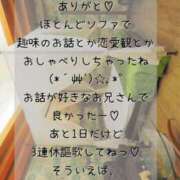 ありがと♡
ほとんどソファで
趣味のお話とか恋愛観とか
おしゃべりしちゃったね
(*´艸`)☆.*
お話が好きなお兄さんで
良かったー♡
あと1日だけど
3連休謳歌してねっ♡
そういえば、